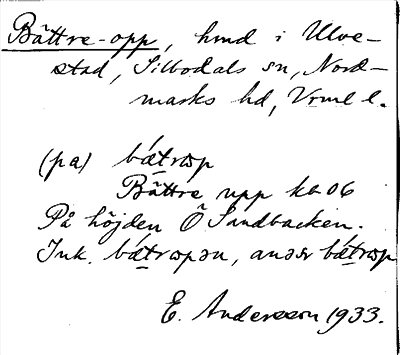 Bättre-opp, hmd i Ulve-
stad, Silbodals sn, Nord-
marks hd, Vrml l.
(pa) bætrɷp
Bättre upp kb 06
På höjden Ö Sandbacken.
Ink. bætrɷpən, anəsr bætrɷp
E. Andersson 1933.